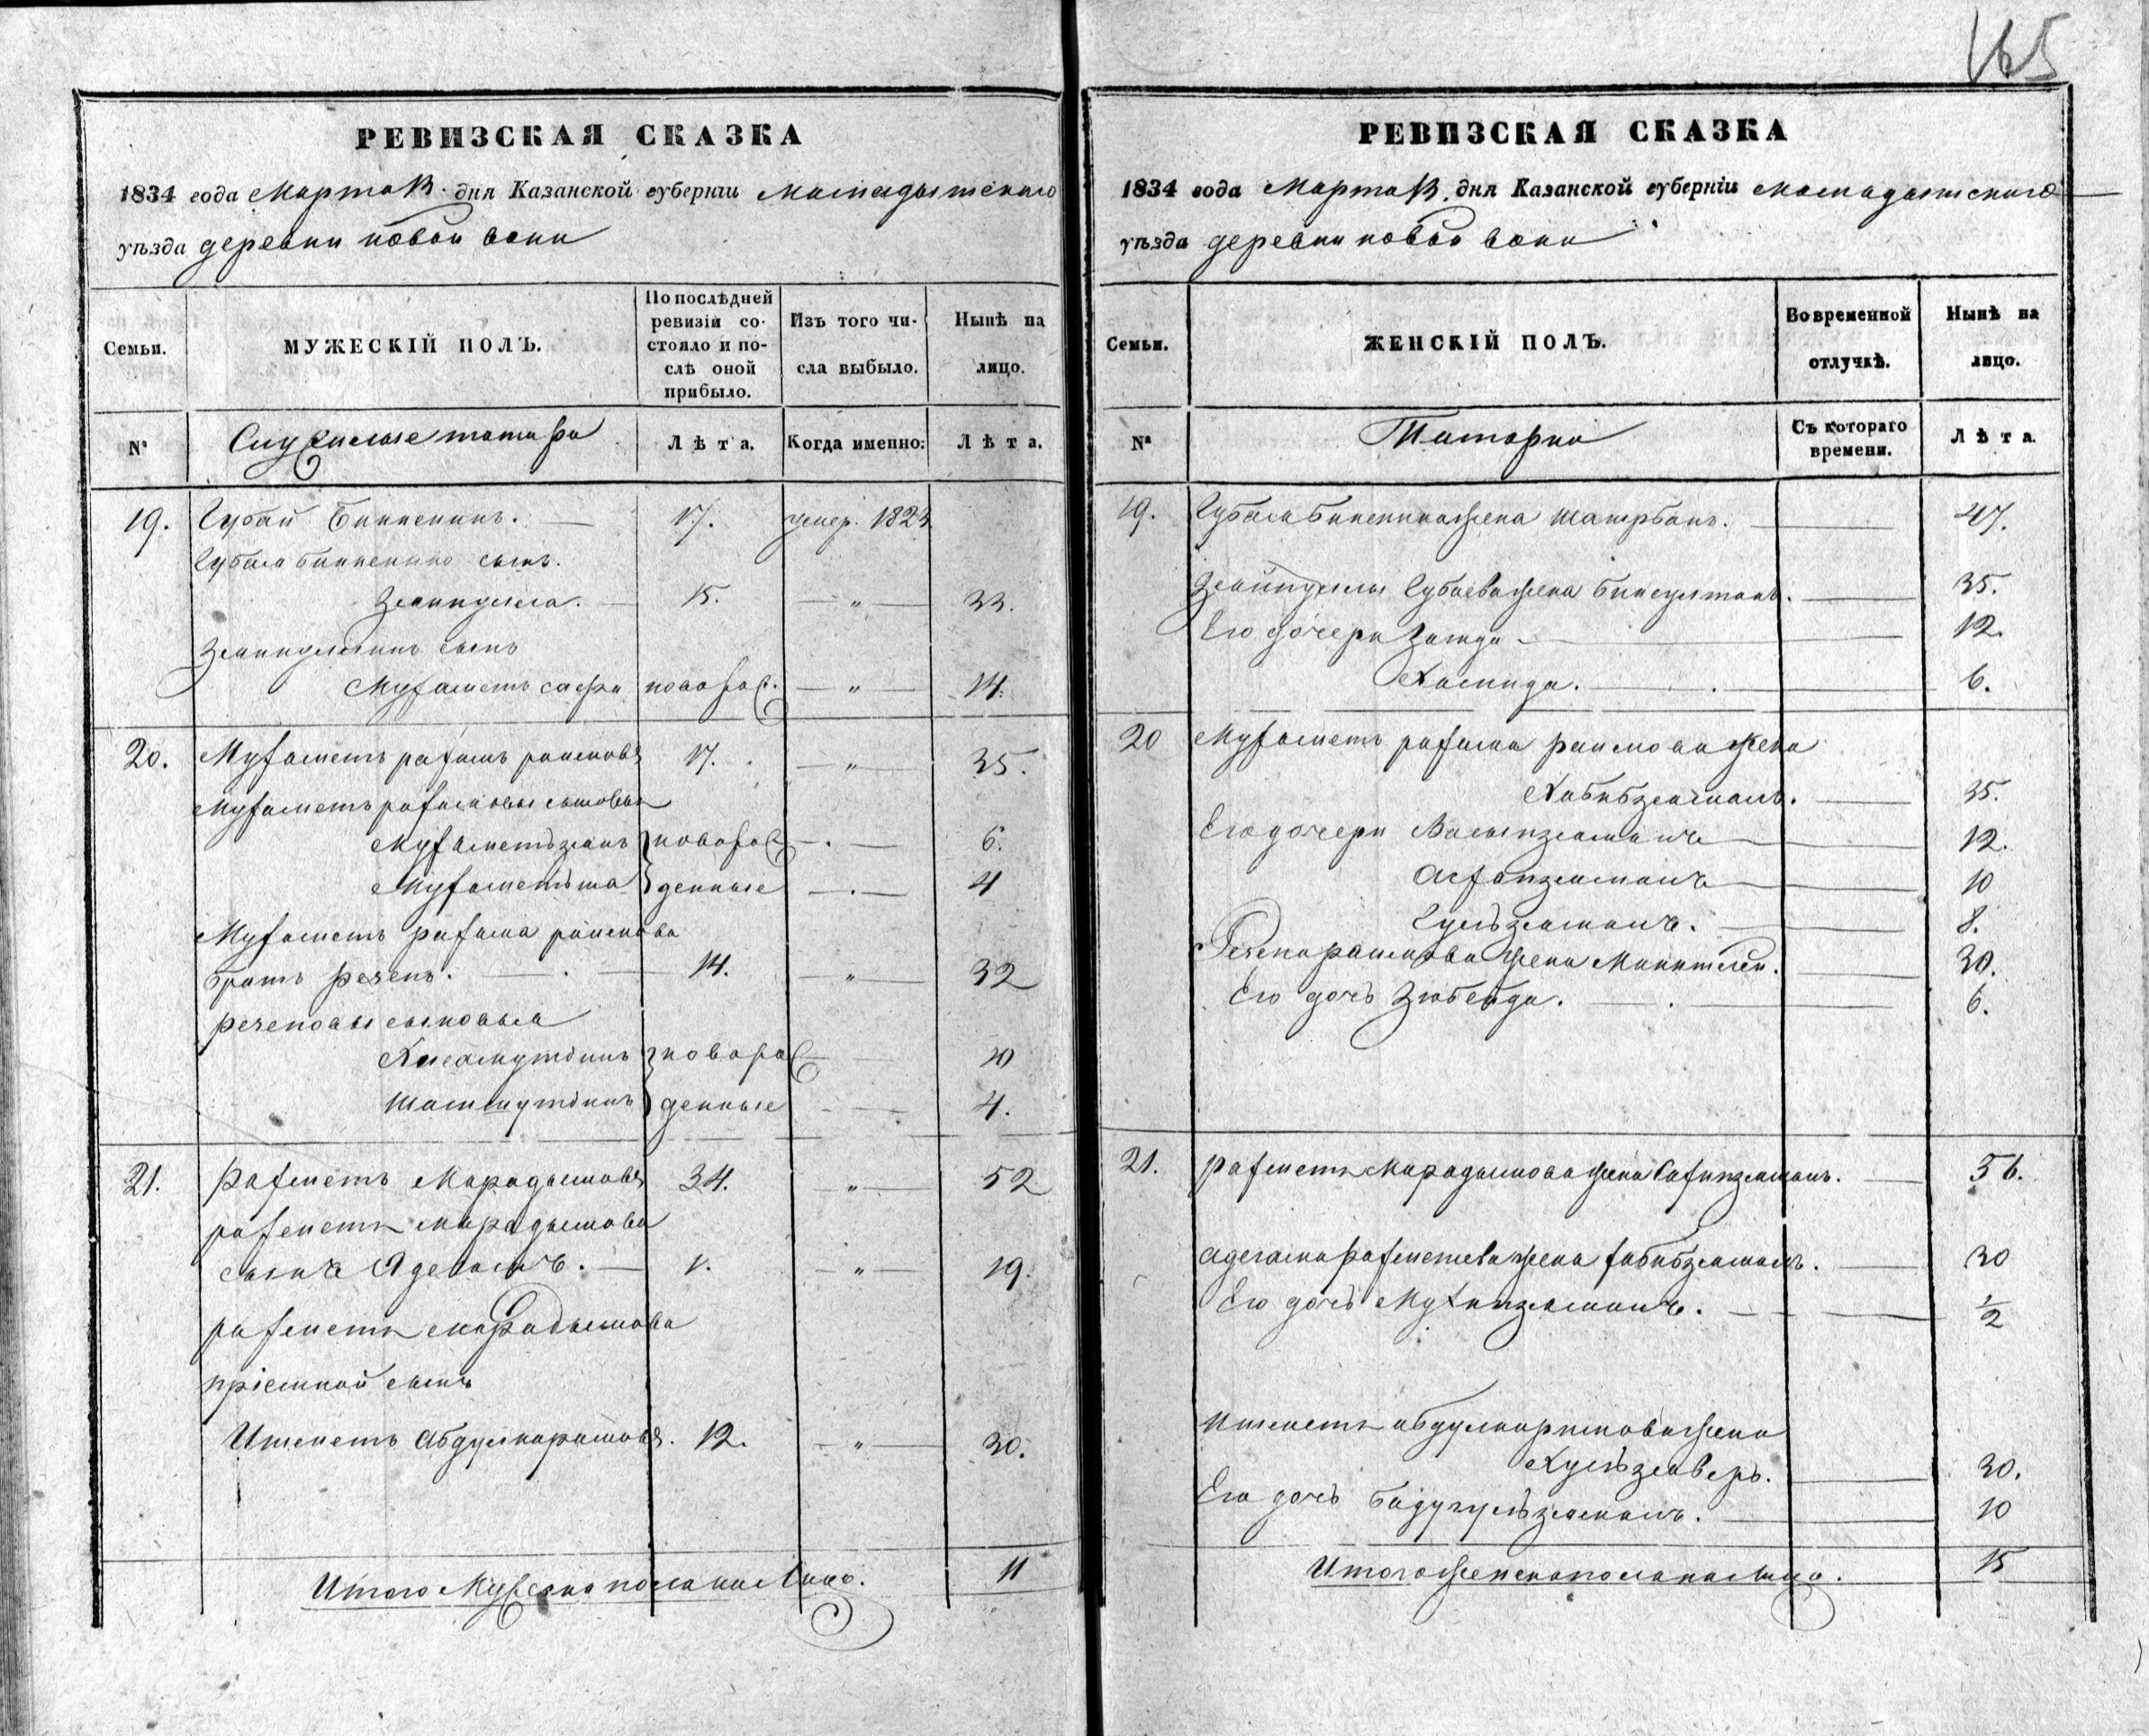 165
РЕВИЗСКАЯ СКАЗКА
1834 года Марта 13. дня Казанской губерніи Мамадышскаго
уѣзда деревни новой
Семьи.
МУЖЕСКІЙ ПОЛЪ.
По послѣдней ревизіи состояло и послѣ оной прибыло.
Изъ того числа выбыло.
Нынѣ на лицо.
№
Служилые татара
Лѣта.
Когда именно.
Лѣта.
19. Губай Биккенинъ. 17. умер. 1823
Губая Биккенина сынъ.
Зейнулла. 15. " 33.
Зейнуллинъ сынъ
Мухаметъ сафа новорож. " 14.
20. Мухаметъ рахимъ раимовъ 17. " 35.
Мухаметъ рахимовы сыновья
Мухаметзянъ новорож 6.
Мухаметша денные 4
Мухаметъ рахима раимова
братъ речепъ. 14. " 32
речеповы сыновья
Хисамутдинъ новорож 10
Шамсутдинъ денные 4.
21. Рахметъ Марадымовъ 34. " 52
рахметъ марадымова
сынъ Адегамъ. 1. " 19.
рахметъ марадымова
пріемной сынъ
Ишметъ Абдулкаримовъ. 12. " 30.
Итого Мужеска пола на Лицо. 11
РЕВИЗСКАЯ СКАЗКА
1834 года Марта 13. дня Казанской губерніи Мамадышскаго
уѣзда деревни новой
Семьи.
ЖЕНСКІЙ ПОЛЪ.
Во временной отлучкѣ.
Нынѣ на лицо.
№
Татарки
Съ котораго времени.
Лѣта.
19. Губая Бикенина жена 47.
Зейнуллы Губаева жена Биксултанъ. 35.
Его дочери 12.
Хамида. 6.
20 Мухаметъ рахима раимова жена
Хабибзямалъ. 35.
Его дочери 12.
10
Гульзямалъ. 8.
Речепа раимова жена 30.
Его дочь Зюбейда. 6.
21. рахметъ Марадымова жена 56.
адегама рахметева жена хабибзямалъ. 30
Его дочь 1/2
Ишметъ абдулкаримова жена
30.
Его дочь 10
Итого женска пола на лицо. 15